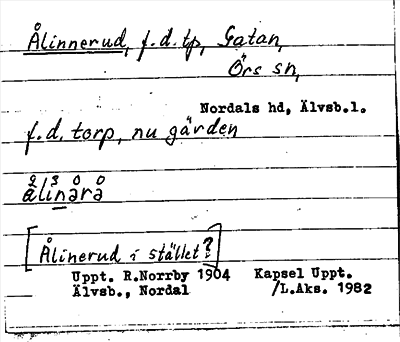 Ålinnerud, f.d. tp, Gatan,
Örs sn,
Nordals hd, Älvsb.l.
f.d. torp, nu gärden
[Ålinerud i stället?]
Uppt. R.Norrby 1904 Kapsel Uppt.
Älvsb., Nordal /L.Aks. 1982